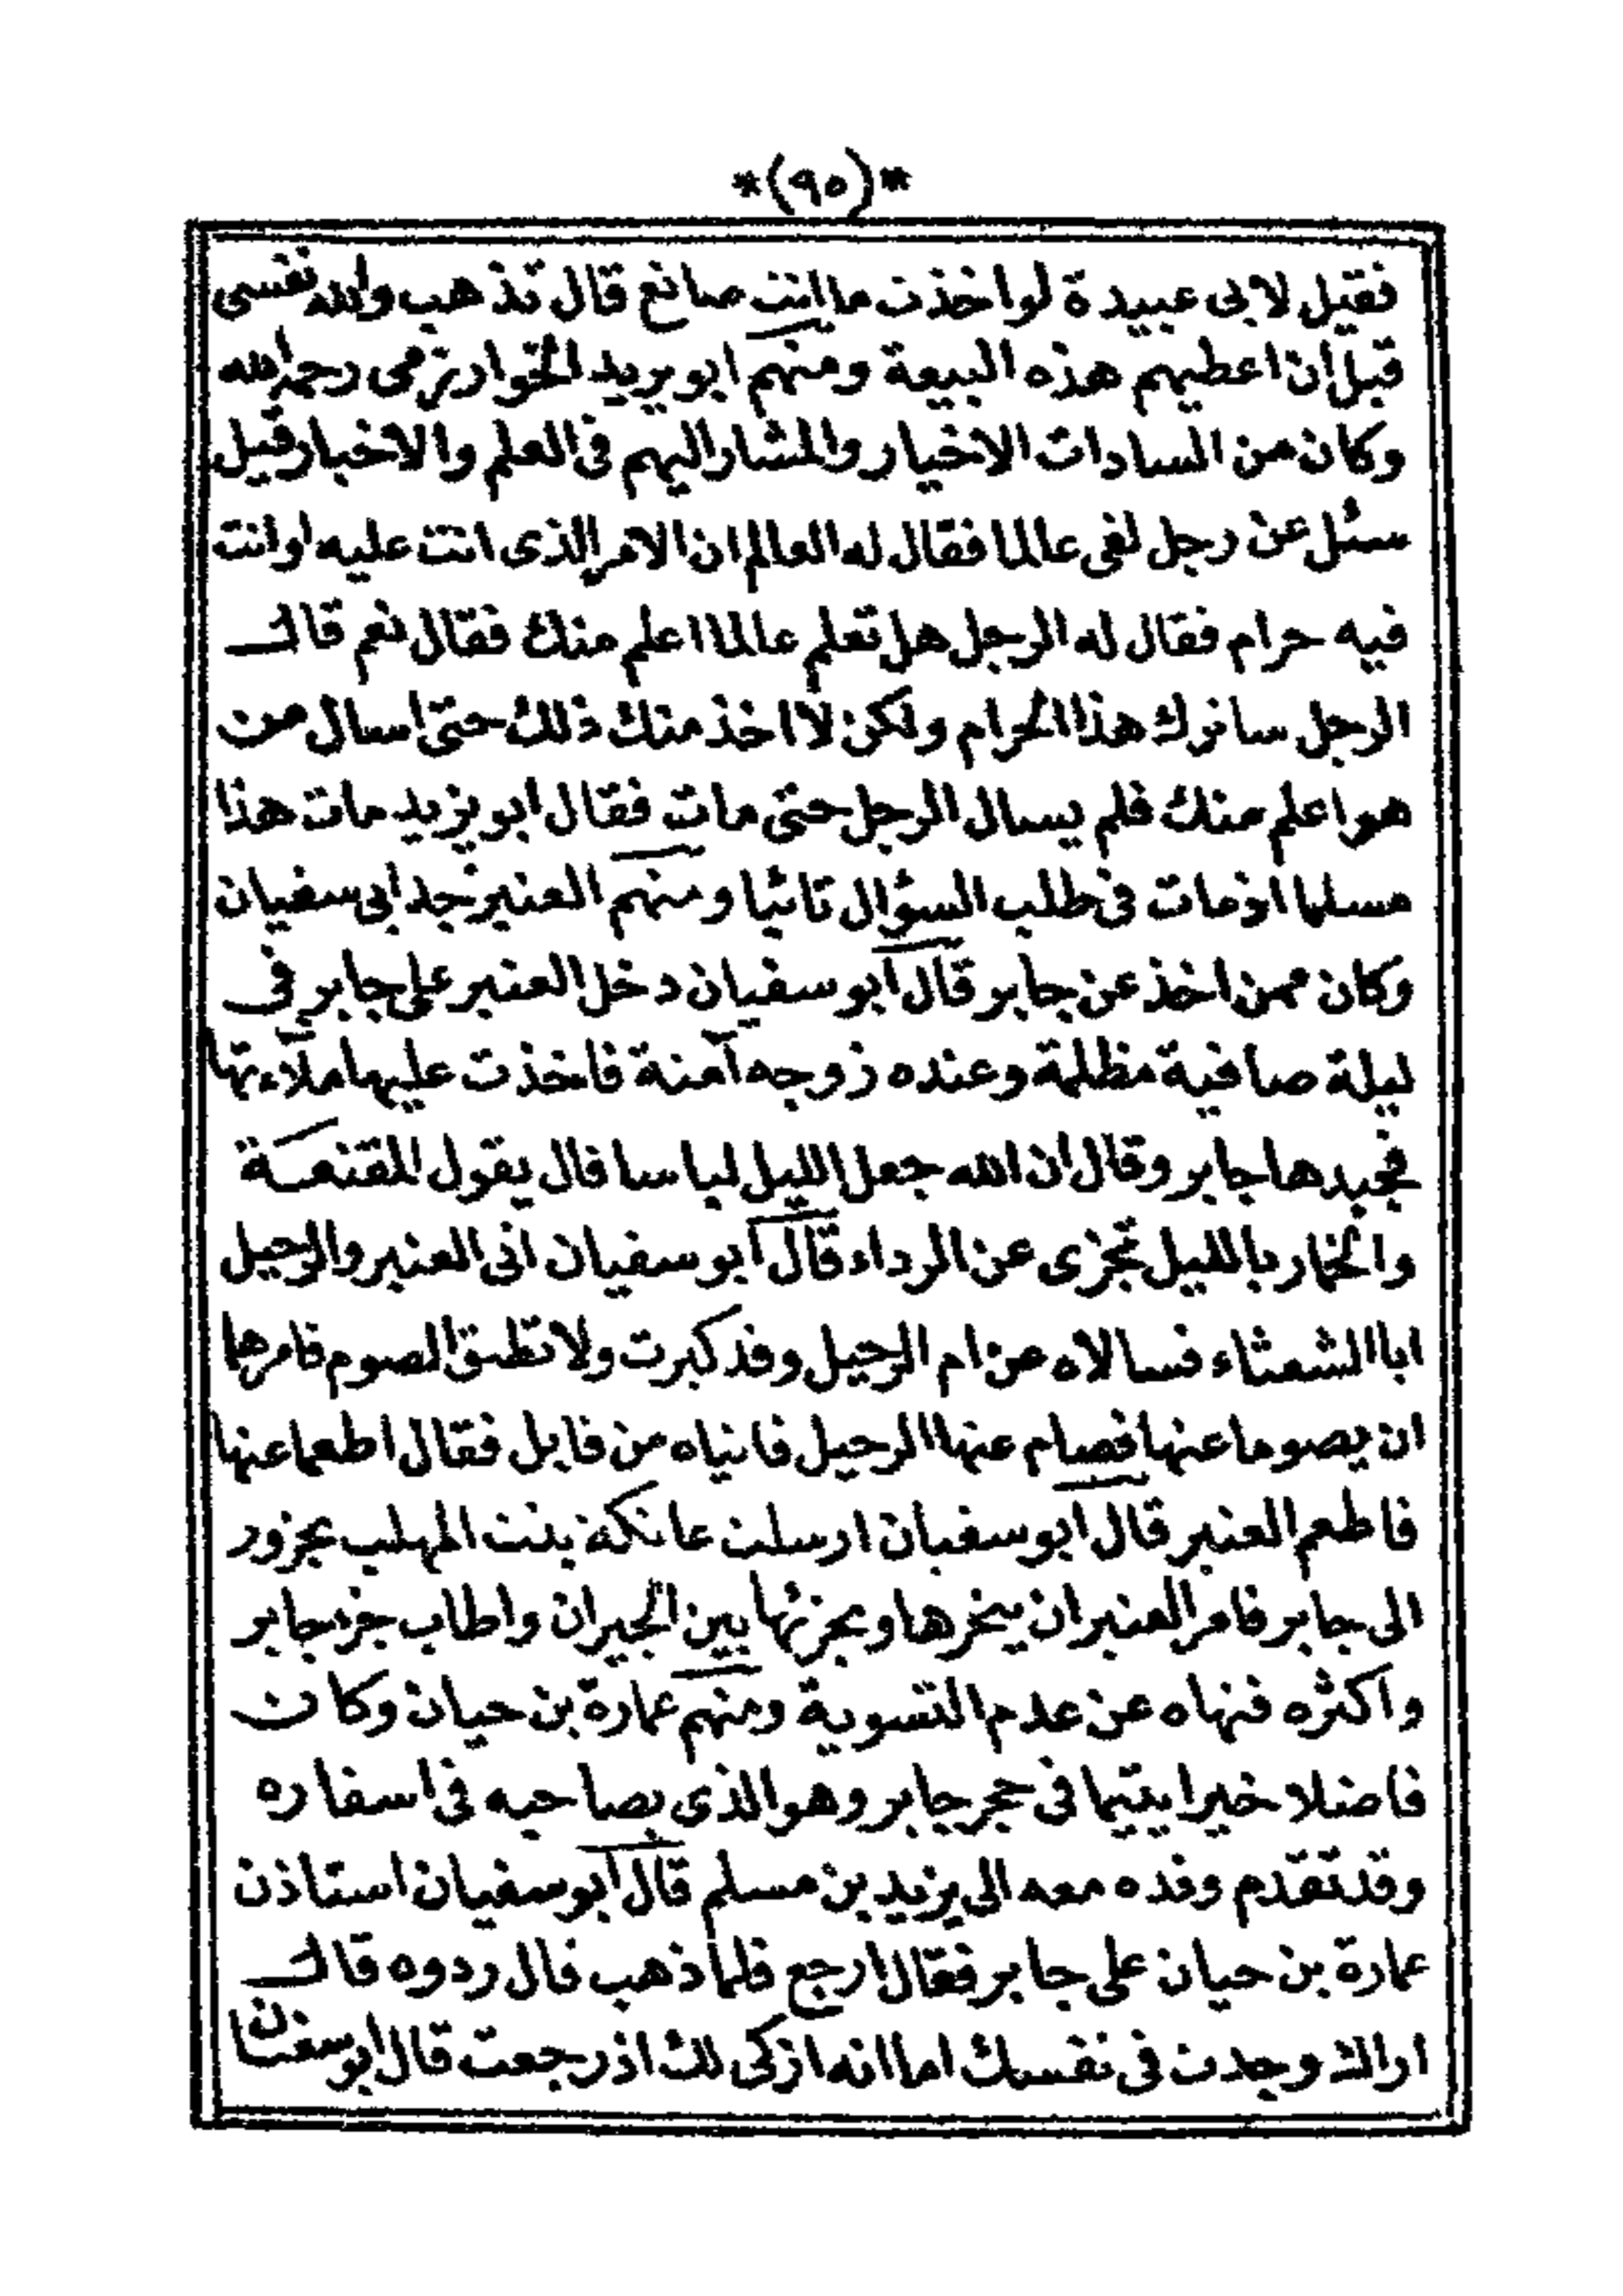 *(٩٥)*
فقيل لابى عبيدة لواخذت ماانت صانع قال تذهب والله نفسى
قبل ان اعطيهم هذه البيعة ومنهم ابويزيد الخوارزمى رحمه الله
وكان من السادات الاخيار والمشار اليهم فى العلم والاخبار قيل
سئل عن رجل لقى عالما فقال له العالم ان الامر الذى انت عليه اوانت
فيه حرام فقال له الرجل هل تعلم عالما اعلم منك فقال نعم قال
الرجل ساترك هذا الحرام ولكن لا اخذ منك ذلك حتى اسال من
هو اعلم منك فلم يسال الرجل حتى مات فقال ابويزيد مات هذا
مسلما اذمات فى طلب السؤال تائبا ومنهم العنبر جد ابى سفيان
وكان ممن اخذ عن جابر قال ابو سفيان دخل العنبر على جابر فى
ليلة صافية مظلمة وعنده زوجه آمنة فاخذت عليها ملآءتها
فجبدها جابر وقال ان الله جعل الليل لباسا قال يقول المقنعة
والخمار بالليل تجزى عن الرداء قال ابو سفيان اتى العنبر والرحيل
ابا الشعثاء فسالاه عن ام الرحيل وقد كبرت ولا تطيق الصوم فامرهما
ان يصوما عنها فصام عنها الرحيل فاتياه من قابل فقال اطعما عنها
فاطعم العنبر قال ابو سفيان ارسلت عاتكة بنت المهلب بجزور
الى جابر فامر العنبر ان ينحرها ويجزئها بين الجيران واطاب جزء جابر
واكثره فنهاه عن عدم التسوية ومنهم عمارة بن حيان وكان
فاضلا خيرا يتيما فى حجر جابر وهو الذى يصاحبه فى اسفاره
وقد تقدم وفده معه الى يزيد بن مسلم قال ابو سفيان استاذن
عمارة بن حيان على جابر فقال ارجع فلما ذهب قال ردوه قال
اراك وجدت فى نفسك اما انه ازكى لك اذ رجعت قال ابو سفيان